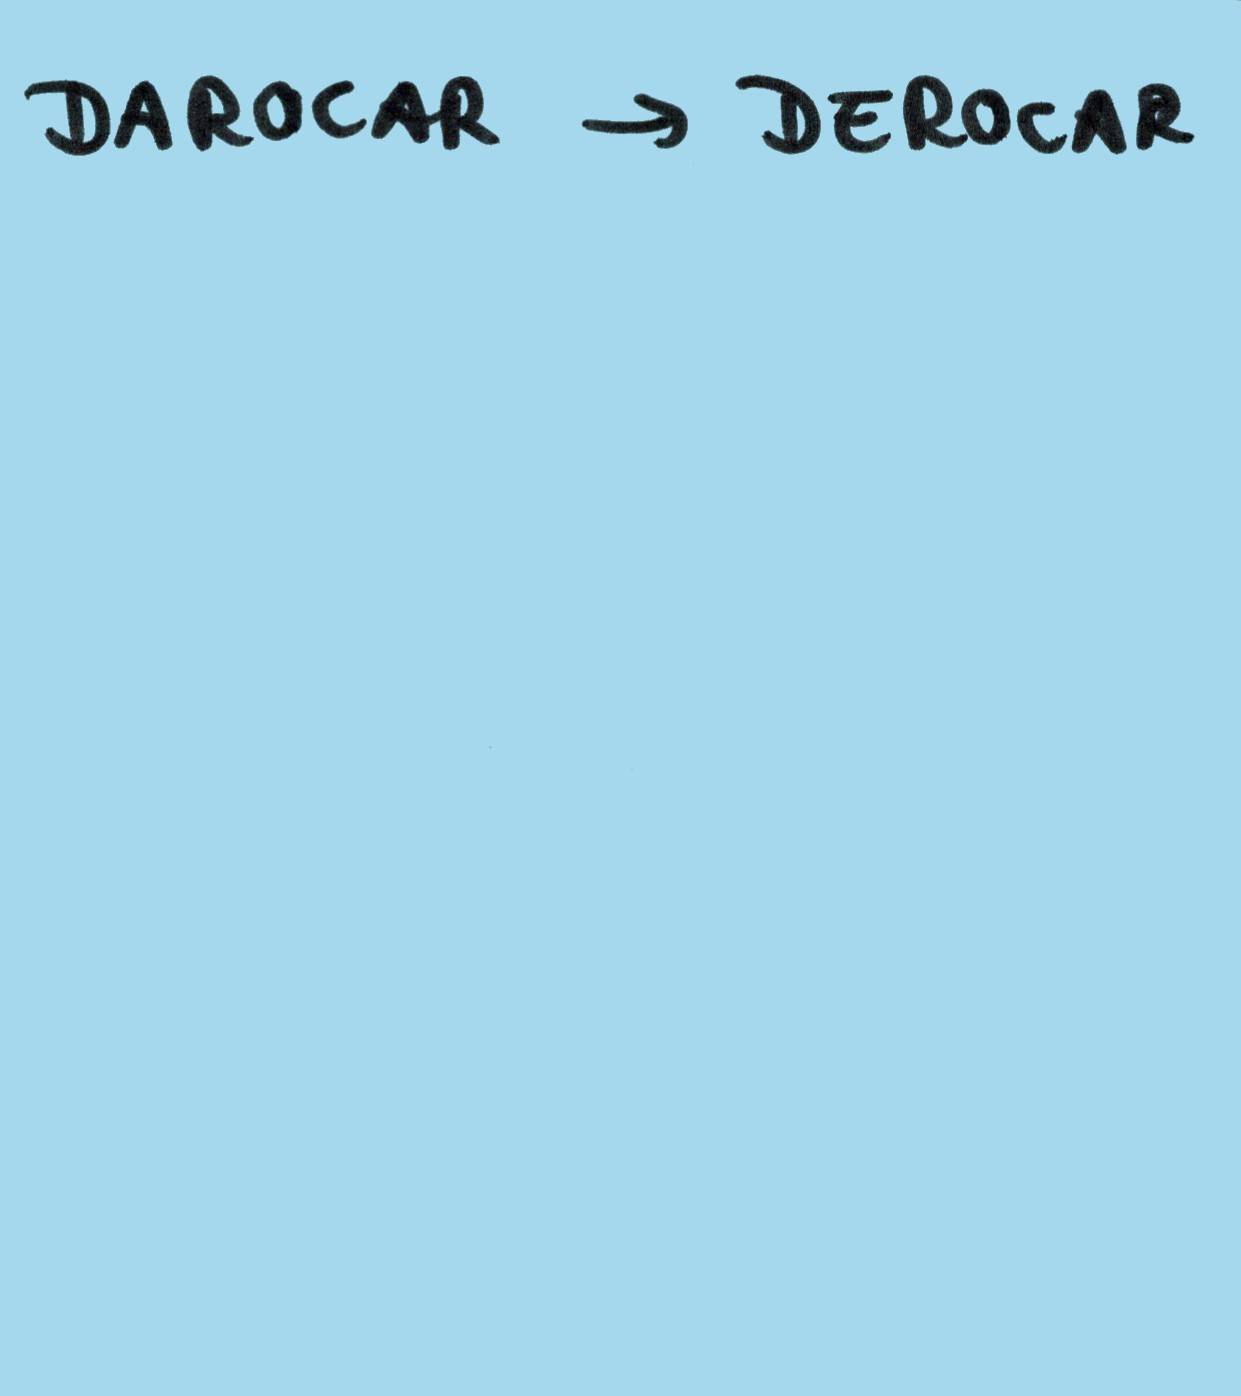 DAROCAR → DEROCAR